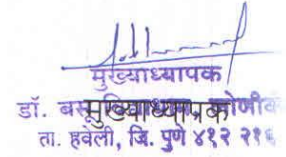 मुख्याध्यापक
डॉ. मुख्याध्यापक
ता. हवेली, जि. पुणे ४१२ २१६